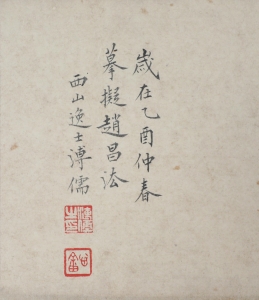 歲在乙酉仲春
摹擬趙昌法
西山逸士溥儒